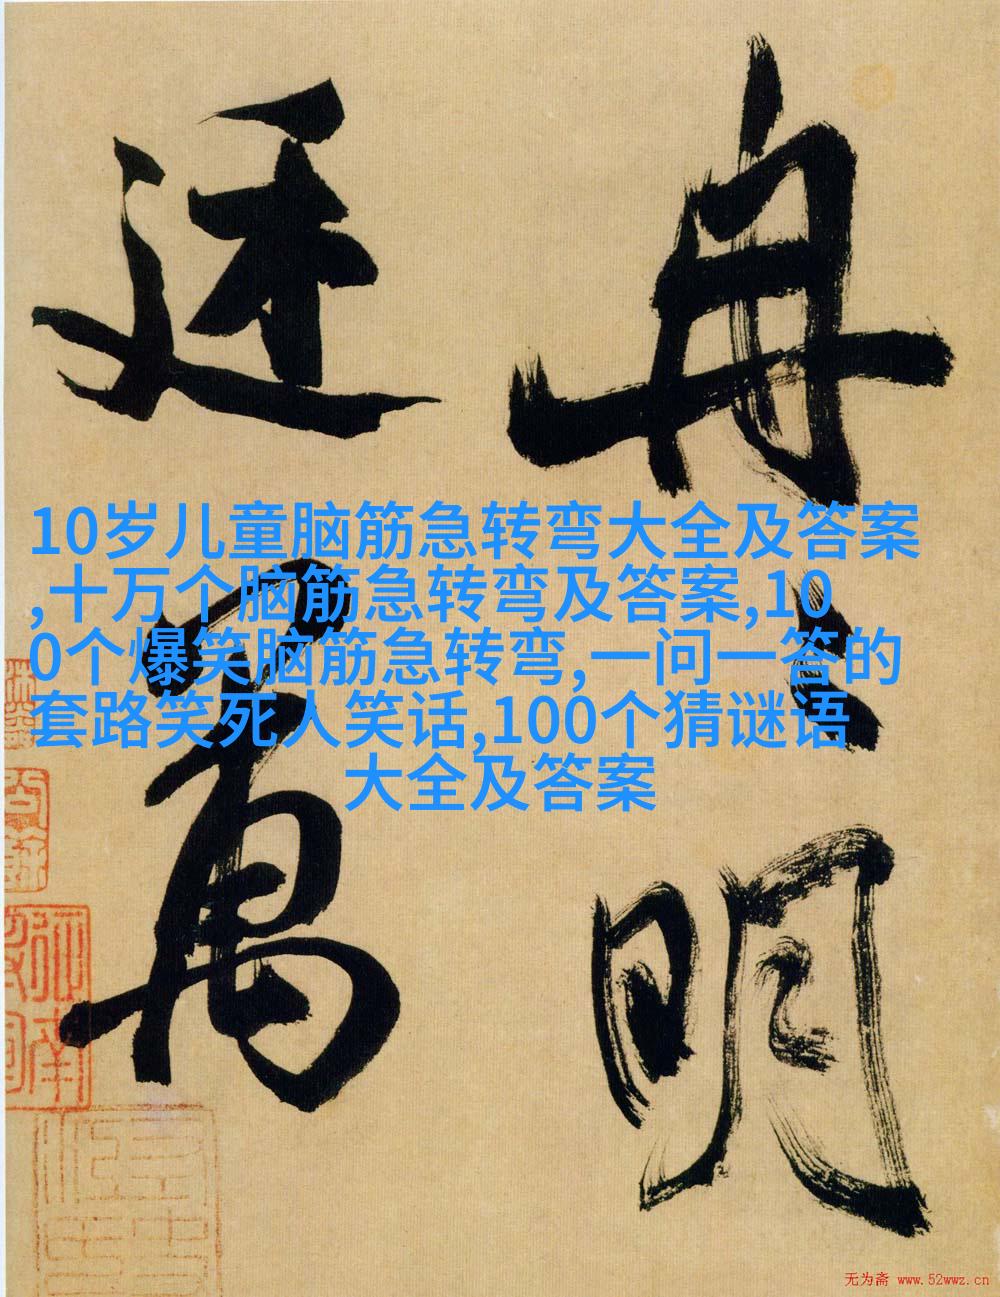 明
萬
10岁儿童脑筋急转弯大全及答案
,十万个脑筋急转弯及答案,10
0个爆笑脑筋急转弯,一问一答的
套路笑死人笑话,100个猜谜语
大全及答案
无为斋 www.52wwz.cn